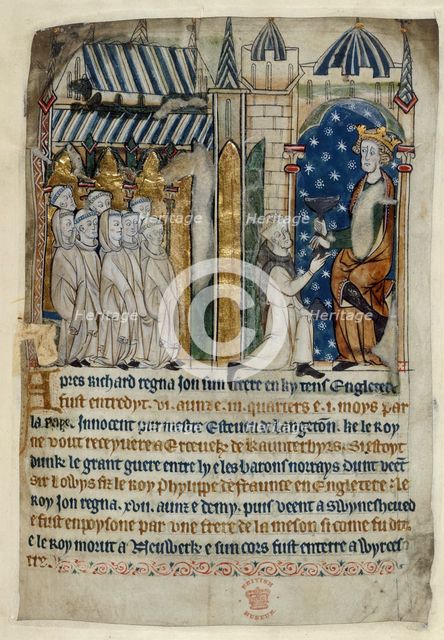 Apres Richard regna Jon sun frere en ky tens Engletere
fust entredyt .vi. aunz e .iii. quarters e .i. moys par
la Pape Innocent pur mestre Estevene de Langeton. ke le Roy
ne vout receyvere a Erceveske de Kaunterbyrs. Si estoyt
dunk le grant guere entre ly e les barons norrays dunt veent
Sir Lowys fiz le Roy Phylippe de Fraunce en Engletere: le
Roy Jon regna .xvii. aunz e demy, puis veent a Swynesheued
e fust enpoysone par une frere de la meson si come fu dit.
e le Roy morut a Neuwerk e sun cors fust enterre a Wyrces
tre.
BRITISH
MUSEUM
Heritage
Heritage
Heritage
Heritage
Heritage
Heritage